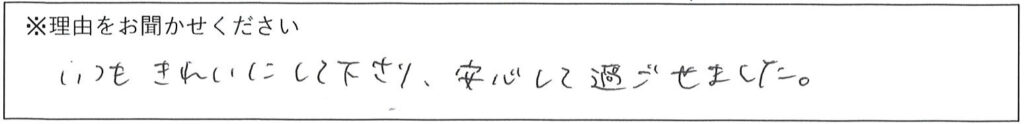 ※理由をお聞かせください
いつもきれいにして下さり、安心して過ごせました。